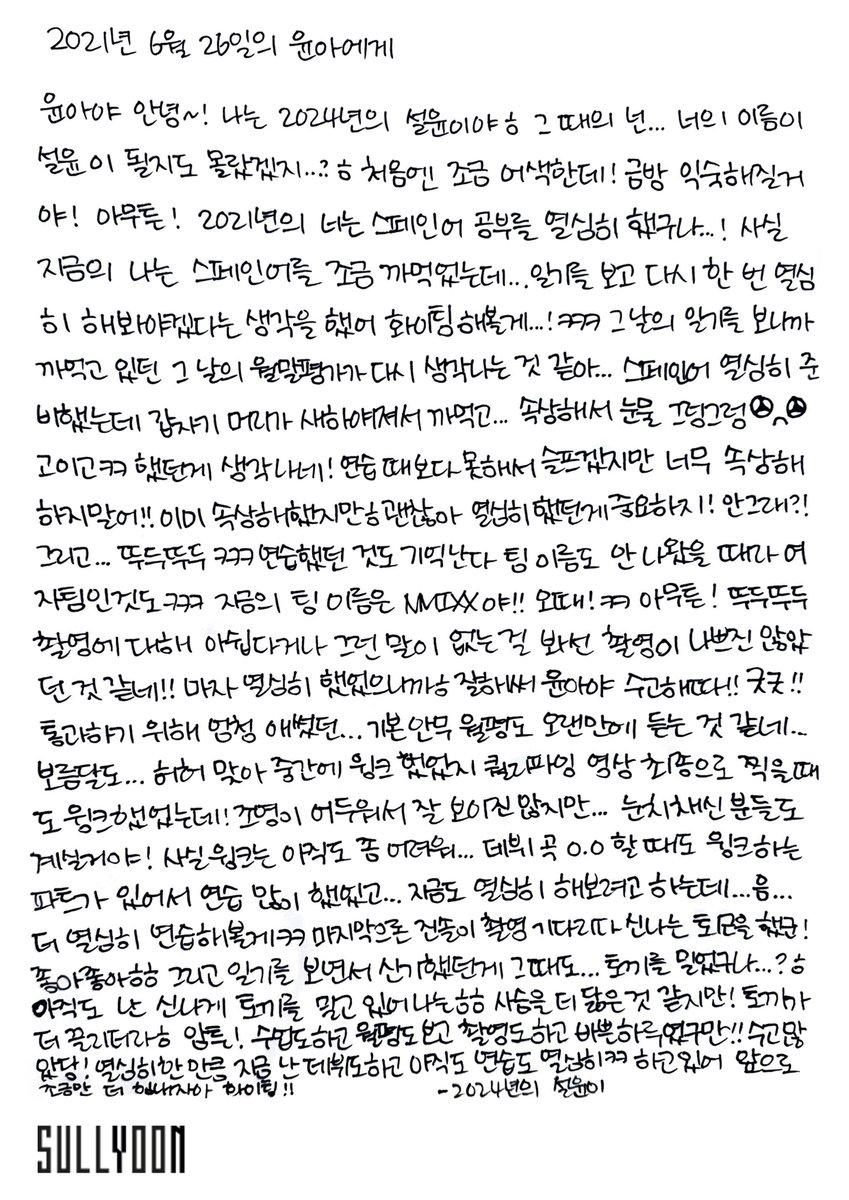 2021년 6월 26일의 윤아에게
윤아야 안녕~! 나는 2024년의 설윤이야ㅎ 그 때의 넌... 너의 이름이
설윤이 될지도 몰랐겠지...?ㅎ 처음엔 조금 어색한데! 금방 익숙해질거
야! 아무튼! 2021년의 너는 스페인어 공부를 열심히 했구나...! 사실
지금의 나는 스페인어를 조금 까먹었는데... 일기를 보고 다시 한 번 열심
히 해봐야겠다는 생각을 했어 화이팅해볼게...!ㅋㅋㅋ 그날의 일기를 보니까
까먹고 있던 그 날의 월말평가가 다시 생각나는 것 같아... 스페인어 열심히 준
비했는데 갑자기 머리가 새하얘져서 까먹고... 속상해서 눈물 그렁그렁
고이고ㅋㅋ 했던게 생각나네! 연습 때보다 못해서 슬프겠지만 너무 속상해
하지말어!! 이미 속상해했지만ㅎ 괜찮아 열심히 했던게 중요하지! 안그래?!
그리고... 뚜두뚜두 ㅋㅋㅋ 연습했던 것도 기억난다 팀 이름도 안 나왔을 때라 여
자팀인것도 ㅋㅋㅋ 지금의 팀 이름은 NMIXX야!! 오때! ㅋㅋ 아무튼! 뚜두뚜두
촬영에 대해 아쉽다거나 그런 말이 없는걸 봐선 촬영이 나쁘진 않았
던 것 같네!! 마자 열심히 했었으니까ㅎ 잘해써 윤아야 수고해따!! 굿굿!!
통과하기 위해 엄청 애썼던... 기본안무 월평도 오랜만에 듣는 것 같네...
보름달도... 허허 맞아 중간에 윙크 했었지 쿼리파잉 영상 최종으로 찍을때
도 윙크했었는데! 조명이 어두워서 잘 보이진 않지만... 눈치채신 분들도
계실거야! 사실 윙크는 아직도 좀 어려워... 데뷔 곡 O.O 할 때도 윙크하는
파트가 있어서 연습 많이 했었고... 지금도 열심히 해보려고 하는데...음...
더 열심히 연습해볼게ㅋㅋ 마지막으론 진솔이 촬영 기다리다 신나는 토모을 했군!
좋아좋아ㅎㅎ 그리고 일기를 보면서 신기했던게 그때도... 토끼를 밀었구나...?ㅎ
아직도 난 신나게 토끼를 밀고 있어 나는ㅎㅎ 사슴을 더 닮은 것 같지만! 토끼가
더 끌리더라ㅎ 암튼! 수업도하고 월평도보고 촬영도하고 바쁜하루였구만!! 수고많
았당! 열심히한 만큼 지금 난 데뷔도하고 아직도 연습도 열심히ㅋㅋ 하고있어 앞으로
조금만 더 힘내자아 화이팅!! -2024년의 설윤이
SULLYOON